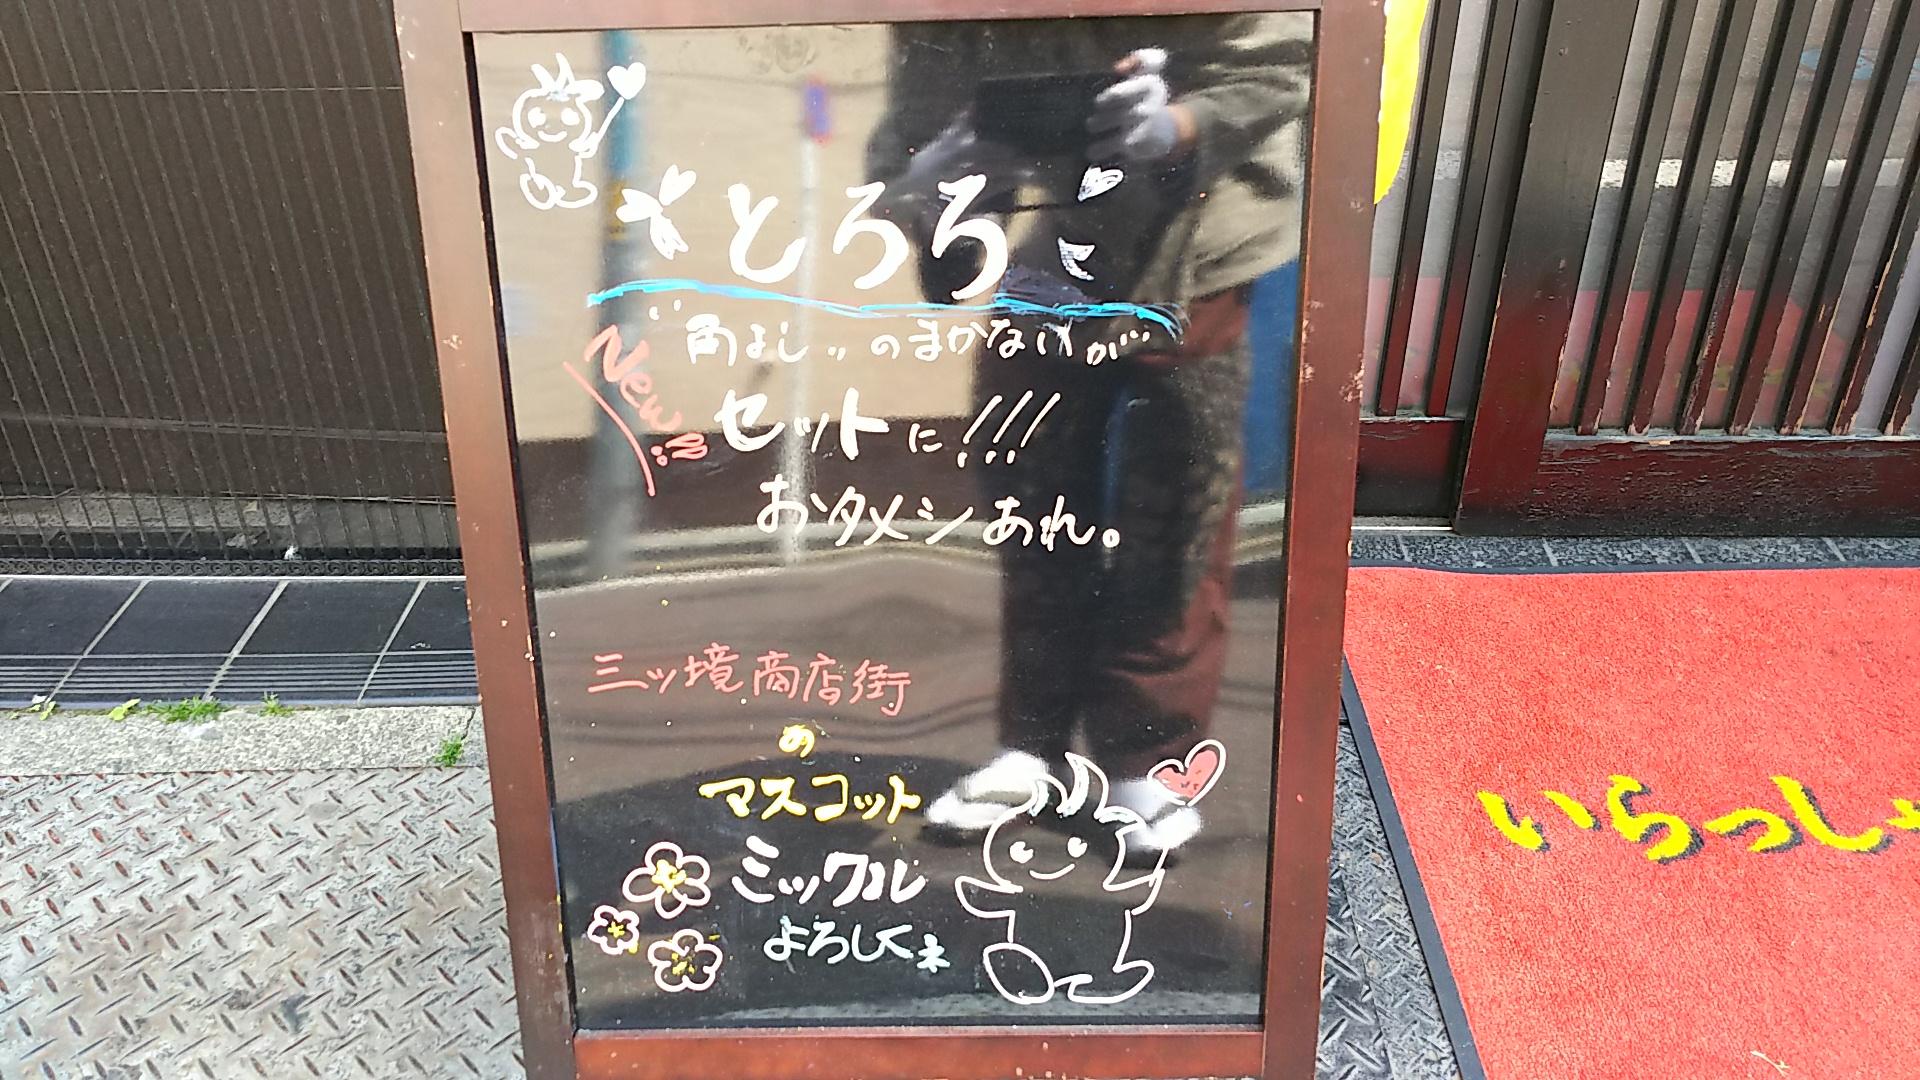 とろろ
"角よし"のまかないが…
New!!
セットに!!!
おタメシあれ。
三ツ境商店街
の
マスコット
ミックル
よろしくネ
いらっしゃ